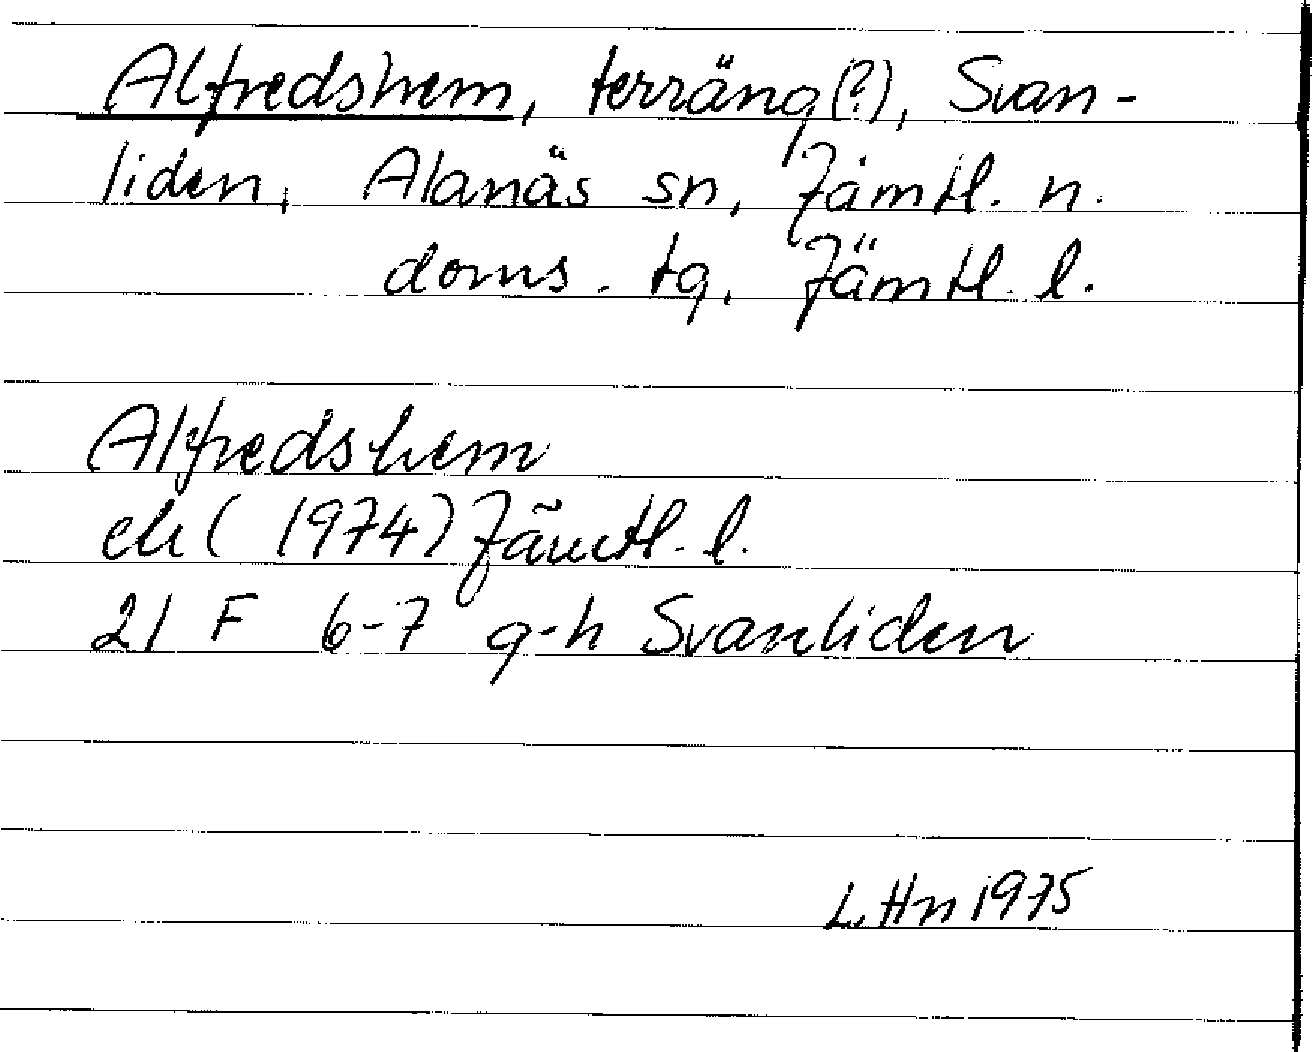 Alfredshem, terräng(?), Svan-
liden, Alanäs sn, Jämtl. n.
doms. tg, Jämtl. l.
Alfredshem
ek (1974) Jämtl. l.
21 F 6-7 g-h Svanliden
L. Hn 1975